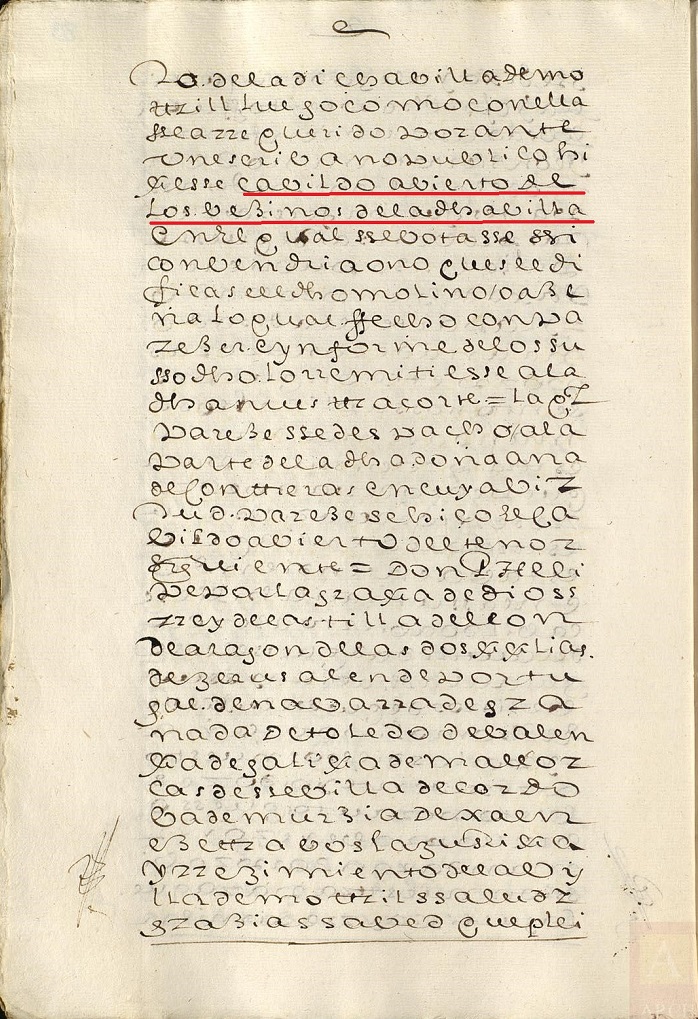 ro. de la dicha villa de mo
ttrill luego como con ella
sea rrequerido por ante
un escribano publico hi
çiesse cavildo avierto de
los vezinos de la dha villa
en el qual sse botasse ssi
convendria o no que se edi
ficase el dho molino o aze
ña lo qual ffecho con pa
rezer e ynforme de lo ssu
ssodho lo rremitiesse a la
dha nuesttra corte = la ql
pareze sse despacho a la
parte de la dha doña ana
de conttreras en cuya vir
tud pareze se hiço el ca
vildo avierto del tenor
siguiente = Don Pheli
pe por la graçia de dios
rrey de castilla de leon
de aragon de las dos siçilias
de jerusalen de portu
gal de navarra de gra
nada de toledo de valen
çia de galiçia de mallor
cas de ssevilla de cordo
va de murzia de xaen
ezettra a vos la justiçia
y rrejimiento de la vi
lla de mottril ssalud y
grazia ssaved que plei